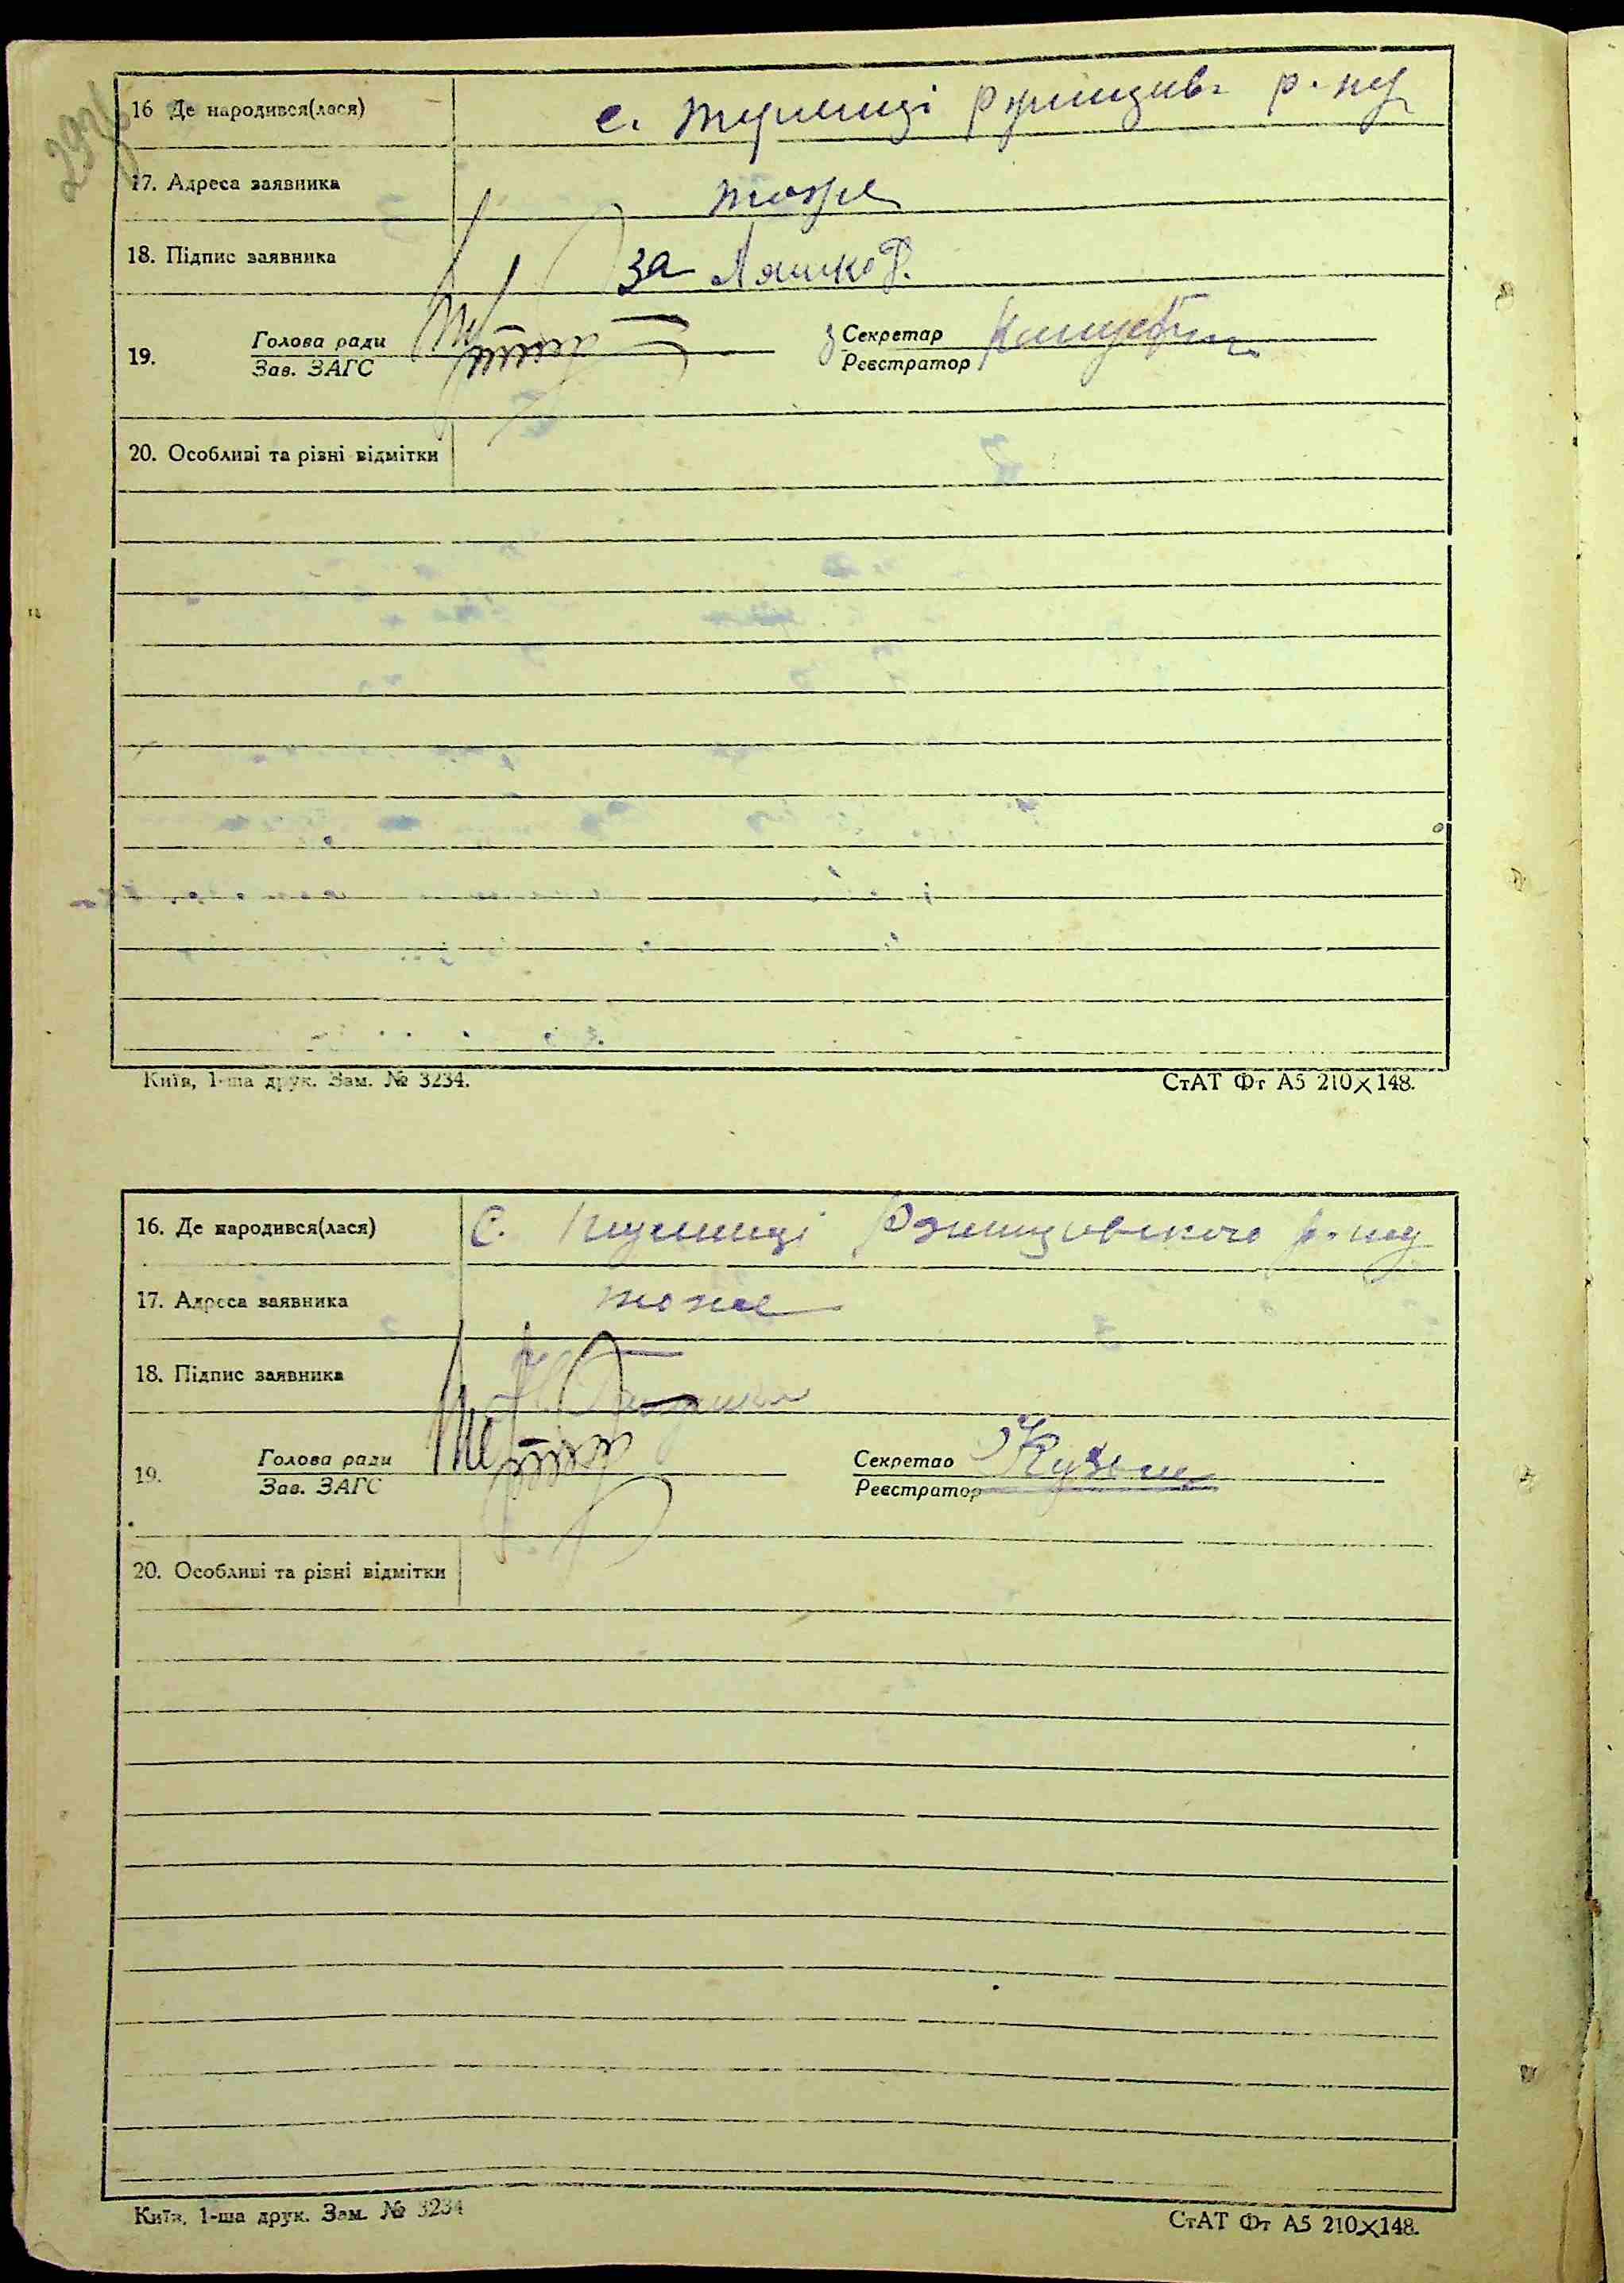 16 Де народився(лася)
с. Тулинці Ржищив. р-ну
17. Адреса заявника
тоже
18. Підпис заявника
за Ляшко
19.
Голова ради
Зав. ЗАГС
Секретар
Реєстратор
20. Особливі та різні відмітки
Київ, 1-ша друк. Зам. № 3234.
СтАТ Фт А5 210×148.
16. Де народився(лася)
С. Тулинці Ржищовского р-ну
17. Адреса заявника
тоже
18. Підпис заявника
19.
Голова ради
Зав. ЗАГС
Секретар
Реєстратор
20. Особливі та різні відмітки
Київ, 1-ша друк. Зам. № 3234
СтАТ Фт А5 210×148.